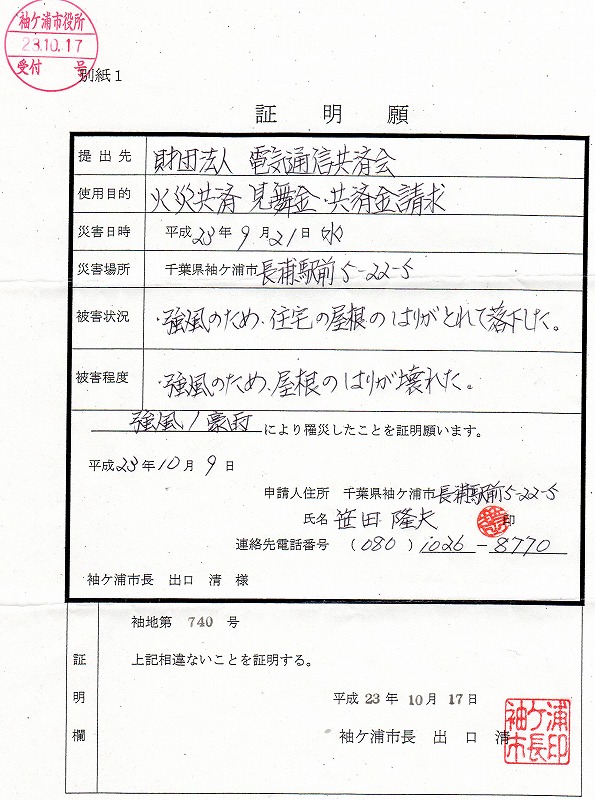 袖ケ浦市役所
23.10.17
受付 号
別紙1
証明願
提出先 財団法人 電気通信共済会
使用目的 火災共済 見舞金・共済金請求
災害日時 平成23年9月21日 水
災害場所 千葉県袖ケ浦市長浦駅前5-22-5
被害状況 ・強風のため、住宅の屋根のはりがとれて落下した。
被害程度 ・強風のため、屋根のはりが壊れた。
強風/豪雨により罹災したことを証明願います。
平成23年10月9日
申請人住所 千葉県袖ケ浦市長浦駅前5-22-5
氏名 笹田 隆夫 印
連絡先電話番号 (080)1026-8770
袖ケ浦市長 出口 清 様
袖地第 740 号
証明欄
上記相違ないことを証明する。
平成23年10月17日
袖ケ浦市長 出口 清
袖ケ浦市長印